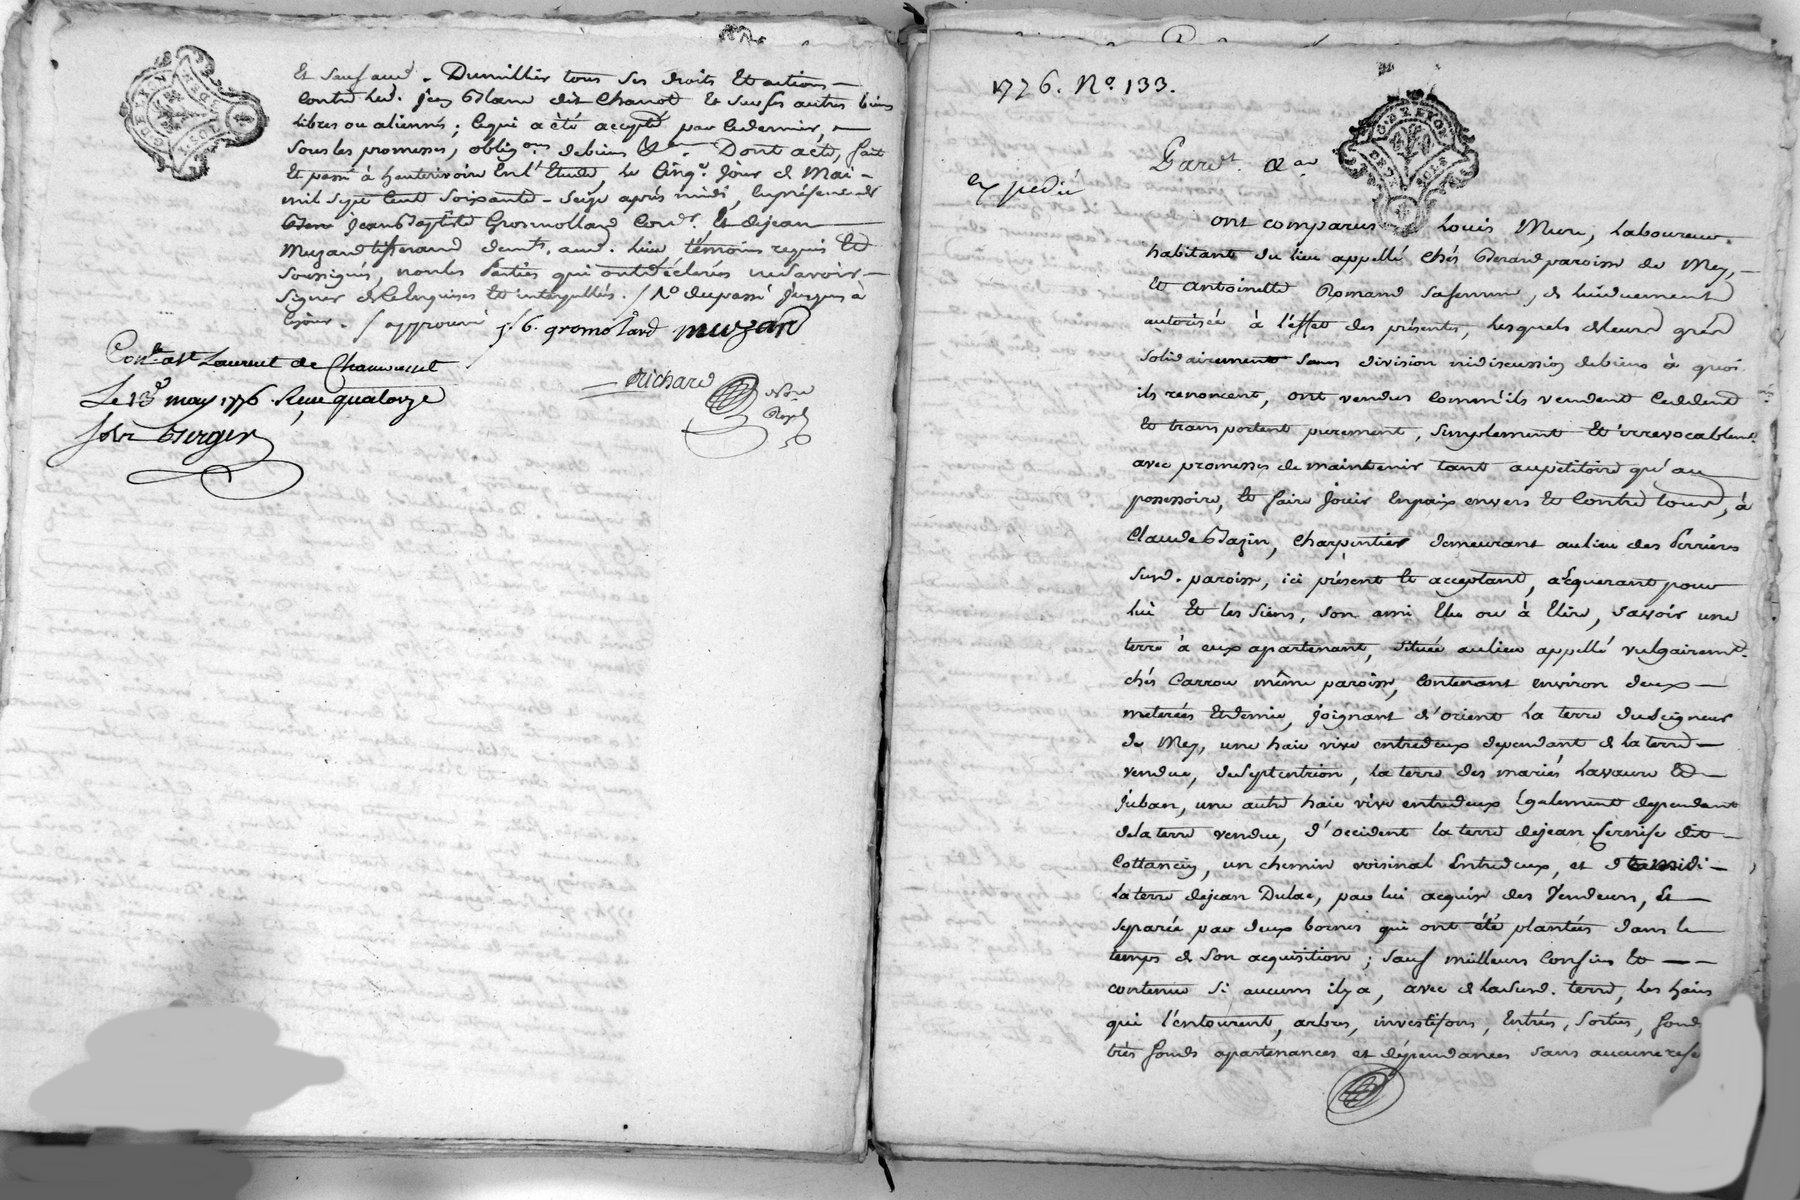 Et sauf aud. Dumillier tous ses droits Et actions
contre led. jean Blanc dit Chanot Et sur ses autres biens
libres ou aliennés ; ce qui a èté accepté par ce dernier,
sous les promesses, oblig.ons de biens &a. Dont acte, fait
Et passé à hauterivoire En l'Etude, le Cinq.e jour de Mai
mil sept Cent soixante - seize après midi, En présence de
jean Baptiste Gromolland Cord.r Et de jean
Muzard tisserand dem.ts aud. lieu témoins requis Et
soussignés, non les Parties qui ont déclarées ne savoir
signer de ce Enquises Et interpellés. /
ce jour. / approuvé j. b. gromolard muzard
Con.lé a St Laurent de Chamousset
Le 13e may 1776. Reçu quatorze
sols Berger
Richard No.re
Royal
1776. No. 133.
Par dt. &a
Expedié
ont comparus Louis Mure, Laboureur
habitant du lieu appellé Chés Berand paroisse de Mey,
Et Antoinette Romand sa femme, de lui duement
autorisée à l'effet des présentes, lesquels de leur gré
solidairement sans division ni discussion de biens à quoi
ils renoncent, ont vendus comm'ils vendent Cedent
Et transportent purement, simplement Et irrevocablem.t
avec promesses de maintenir tant au petitoire qu'au
possessoire, Et faire jouir En paix envers Et Contre tous, à
Claude Bazin, Charpentier demeurant au lieu des Perrières
susd. paroisse, ici présent Et acceptant, acquerant pour
lui Et les siens, son ami Elu ou à Elire, savoir une
terre à eux apartenant, située au lieu appellé vulgairemt.
chés Carrou même paroisse, Contenant environ deux
meterées Et demie, joignant d'orient la terre du Seigneur
de Mey, une haie vive entredeux dependant de la terre
vendue, de Septentrion, la terre des mariés Lavaure Et
juban, une autre haie vive entredeux Egalement dependant
de la terre vendue, d'occident la terre de jean Fernise dit
Cottancin, un chemin voisinal Entredeux, et de midi
la terre de jean Dulac, par lui acquise des Vendeurs, Et
separée par deux bornes qui ont été plantées dans le
temps de son acquisition ; sauf meilleurs Confins Et
contenue si aucuns il y a, avec de la susd. terre, les haies
qui l'entourent, arbres, investisons, Entrées, Sorties, fonds
très fonds apartenances et dépendances sans aucune rese